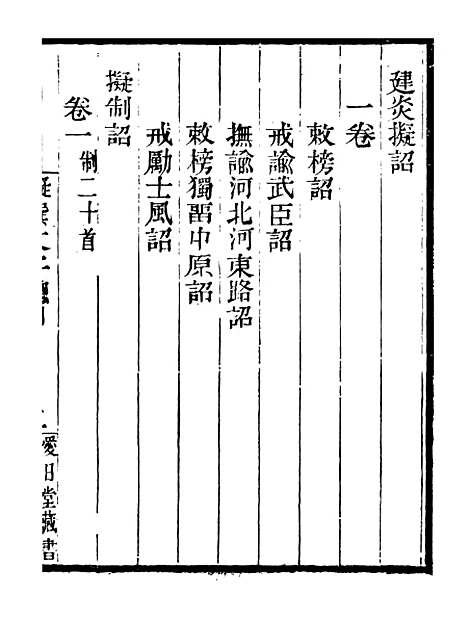 建炎擬詔
一卷
敕榜詔
戒諭武臣詔
撫諭河北河東路詔
敕榜獨畱中原詔
戒勵士風詔
擬制詔
卷一制二十首
愛日堂藏書